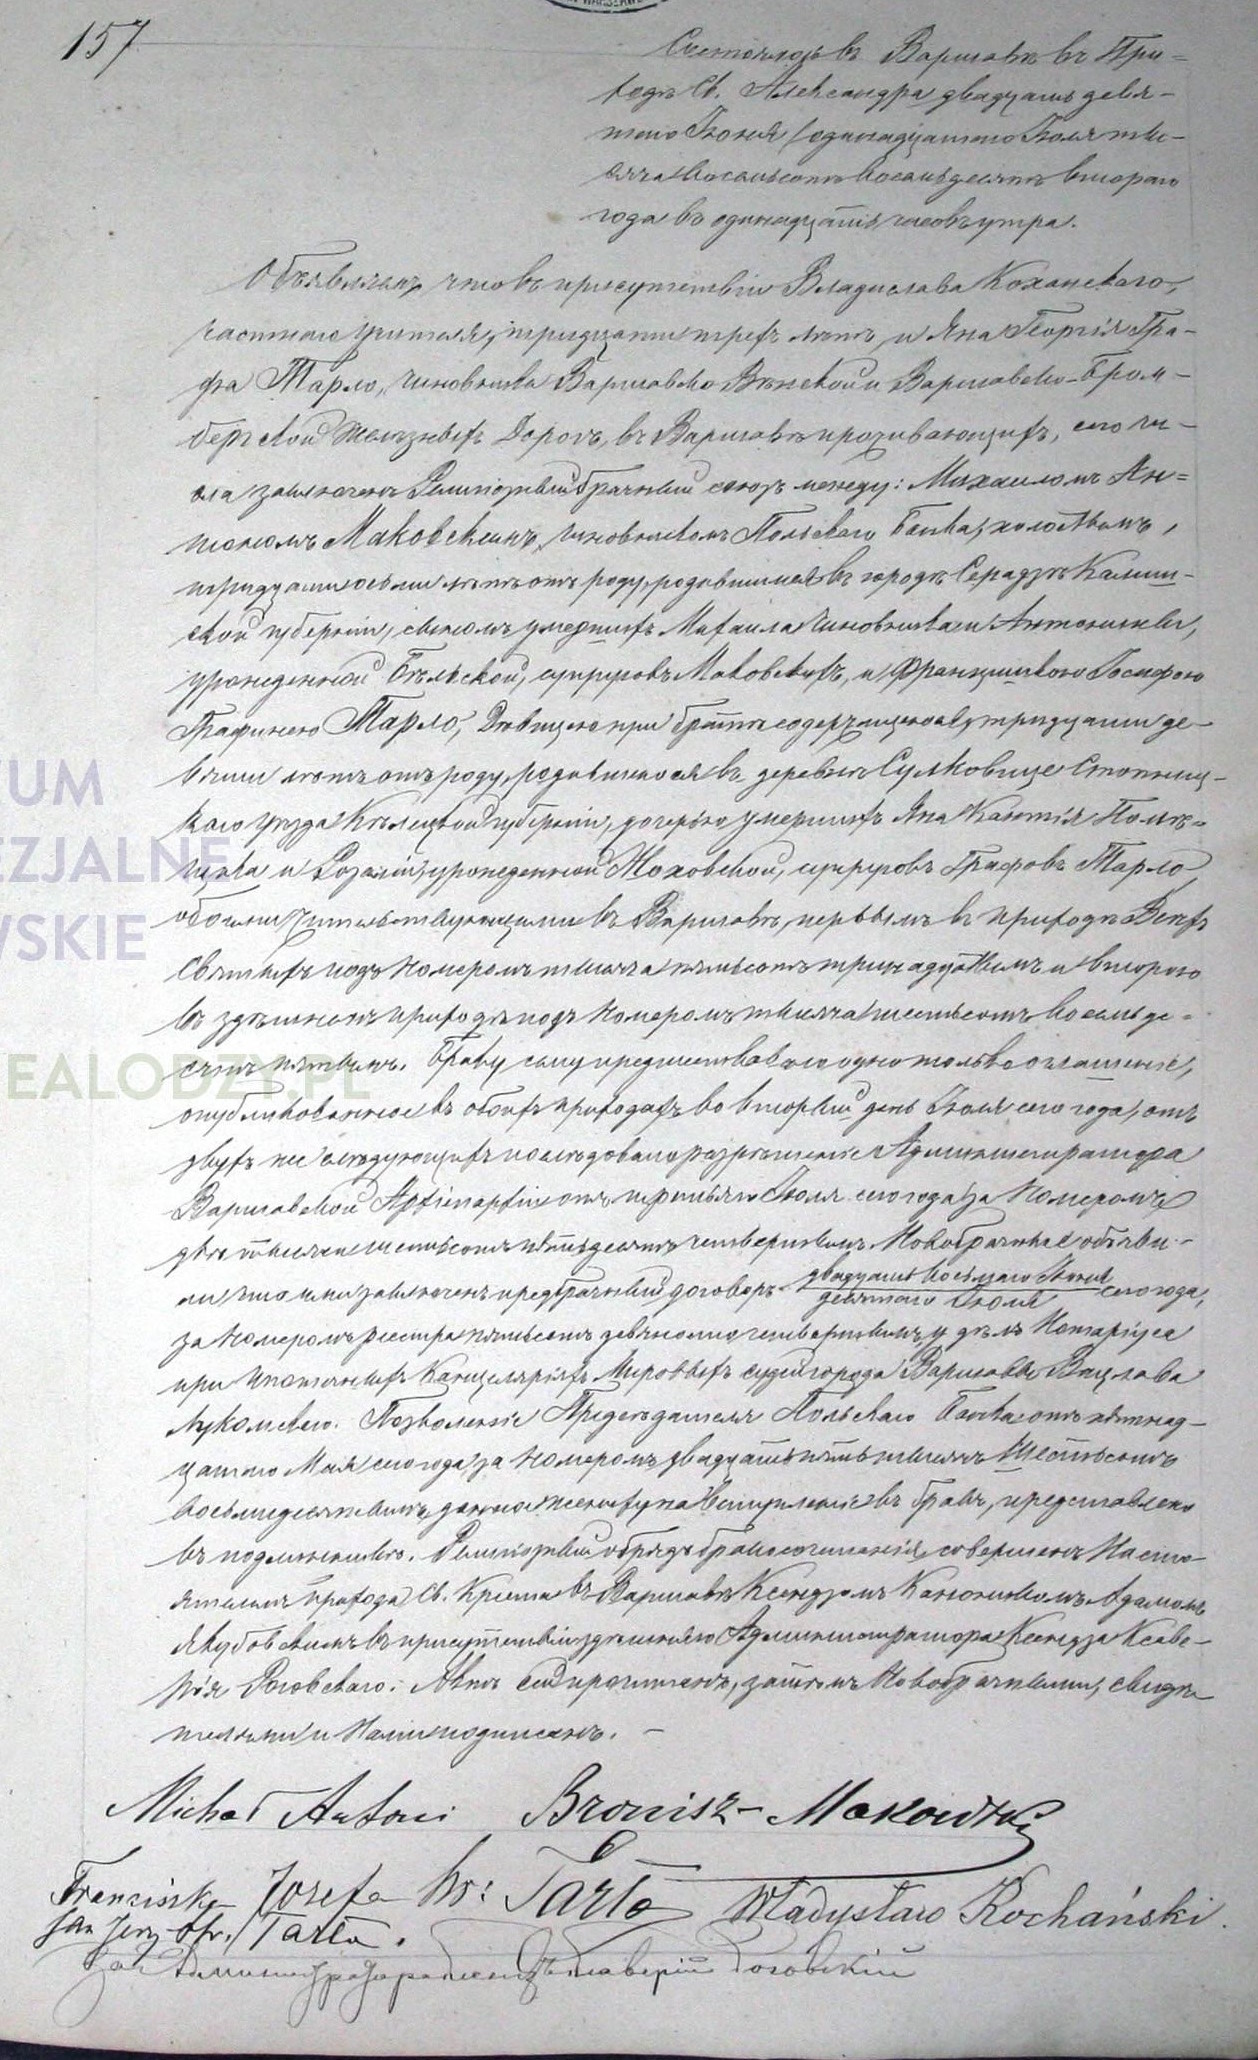 157
Состоялось въ Варшавѣ въ При-
ходѣ Св. Александра двадцать девя-
таго Іюня / одинадцатаго Іюля тыся-
ча восемьсотъ восемьдесятъ втораго
года въ одинадцать часовъ утра.
Объявляемъ, что въ присутствіи Владислава Коханскаго,
частнаго учителя, тридцати трехъ лѣтъ, и Яна Георгія Гра-
фа Тарло, чиновника Варшавско Вѣнской и Варшавско-Бром-
бергской Желѣзныхъ Дорогъ, въ Варшавѣ проживающихъ, сего чи-
сла заключенъ Религіозный брачный союзъ между: Михаиломъ Ан-
тономъ Маковскимъ, чиновникомъ Польскаго Банка, холостымъ,
тридцати осьми лѣтъ отъ роду, родившимся въ городѣ Серадзѣ Калиш-
ской губерніи, сыномъ умершихъ Михаила чиновника и Антонины,
урожденной Бѣльской, супруговъ Маковскихъ, и Францишкою Іосифою
Графинею Тарло, Дѣвицею при братѣ содержащеюся, тридцати де-
вяти лѣтъ отъ роду, родившеюся въ деревнѣ Сулковице Стопниц-
каго уѣзда Кѣлецкой губерніи, дочерью умершихъ Яна Кантія Помѣ-
щика и Розаліи, урожденной Моховской, супруговъ Графовъ Тарло,
обоими жительствующими въ Варшавѣ, первымъ въ приходѣ Всѣхъ
Святыхъ подъ номеромъ тысяча пятьсотъ тринадцатымъ и второю
въ здѣшнемъ приходѣ подъ номеромъ тысяча шестьсотъ восемьде-
сятъ пятымъ. Браку сему предшествовало одно только оглашеніе,
опубликованное въ обоихъ приходахъ во второй день Іюля сего года, отъ
двухъ же слѣдующихъ послѣдовало разрѣшеніе Администратора
Варшавской Архіепархіи отъ третьяго Іюля сего года за Номеромъ
двѣ тысячи шестьсотъ пятьдесятъ четвертымъ. Новобрачные объяви-
ли что ими заключенъ предбрачный договоръ двадцать восьмаго Іюня / девятаго Іюля сего года,
за номеромъ реестра пятьсотъ девяносто четвертымъ, у дѣлъ Нотаріуса
при Ипотечныхъ Канцеляріяхъ Мировыхъ судей города Варшавы Вацлава
Лукомскаго. Позволеніе Предсѣдателя Польскаго Банка отъ пятнад-
цатаго Мая сего года за номеромъ двадцать пять тысячъ шестьсотъ
восьмидесятымъ, данное жениху на вступленіе въ бракъ, представлено
въ подлинникѣ. Религіозный обрядъ бракосочетанія совершенъ Насто-
ятелемъ прихода Св. Креста въ Варшавѣ Ксендзомъ Каноникомъ Адамомъ
Якубовскимъ въ присутствіи здѣшняго Администратора Ксендза Ксаве-
рія Роговскаго. Актъ сей прочитанъ, затѣмъ Новобрачными, свидѣ-
телями и Нами подписанъ. —
Michał Antoni Bronisz-Makowski
Franciszka Józefa hr: Tarło Władysław Kochański.
Jan Jerzy hr. Tarło.
За Администратора Ксендзъ Ксаверій Роговскій
UM
EZJALNE
WSKIE
EALODZY.PL